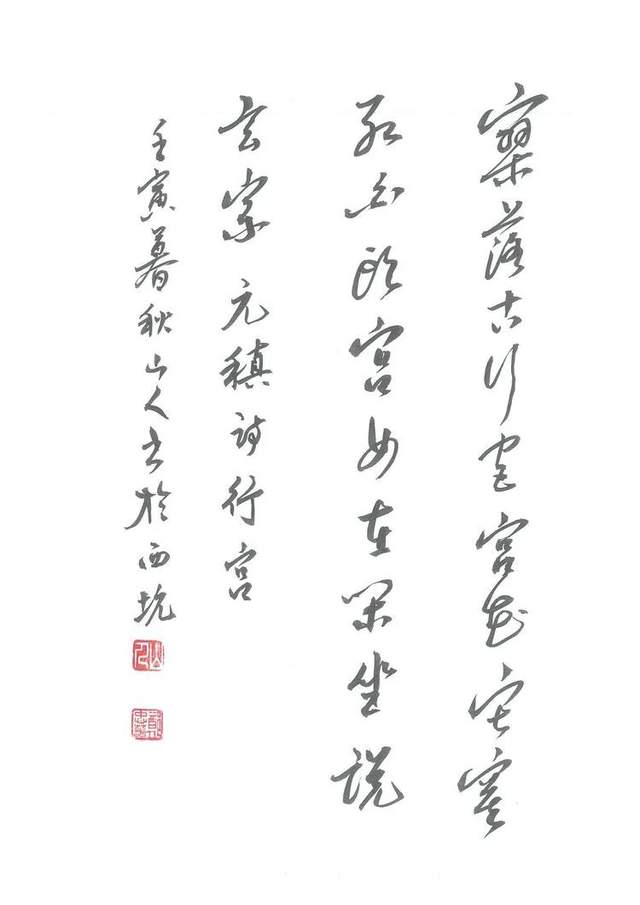 寥落古行宮宮花寂寞
紅白頭宮女在閑坐説
玄宗 元稹詩行宮
壬寅暮秋山人書於西坑
山人